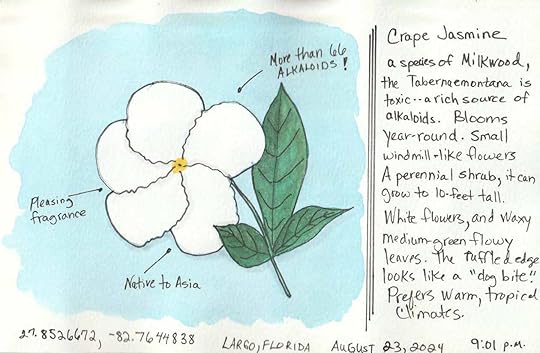 More than 66
ALKALOIDS!
Pleasing
fragrance
Native to Asia
Crape Jasmine
a species of Milkwood,
the Tabernaemontana is
toxic--a rich source of
alkaloids. Blooms
year-round. Small
windmill-like flowers
A perennial shrub, it can
grow to 10-feet tall.
White flowers, and waxy
medium-green flowy
leaves. The ruffled edge
looks like a "dog bite."
Prefers warm, tropical
climates.
27.8526672, -82.7644838 LARGO, FLORIDA AUGUST 23, 2024 9:01 P.M.